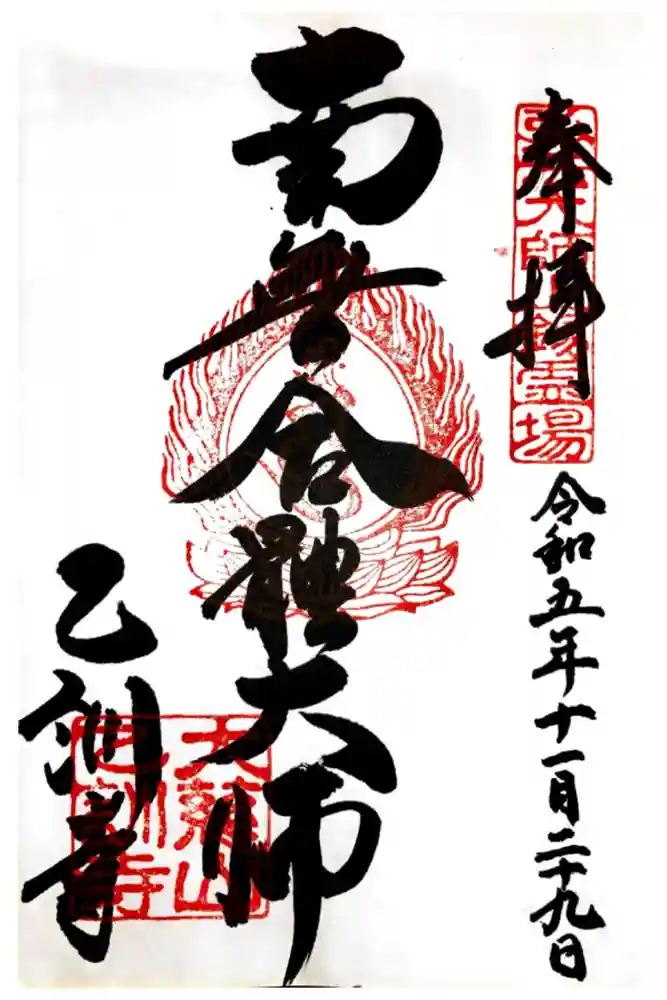 奉拝
令和五年十一月二十九日
南無合體大師
乙訓寺
大慈山
乙訓寺